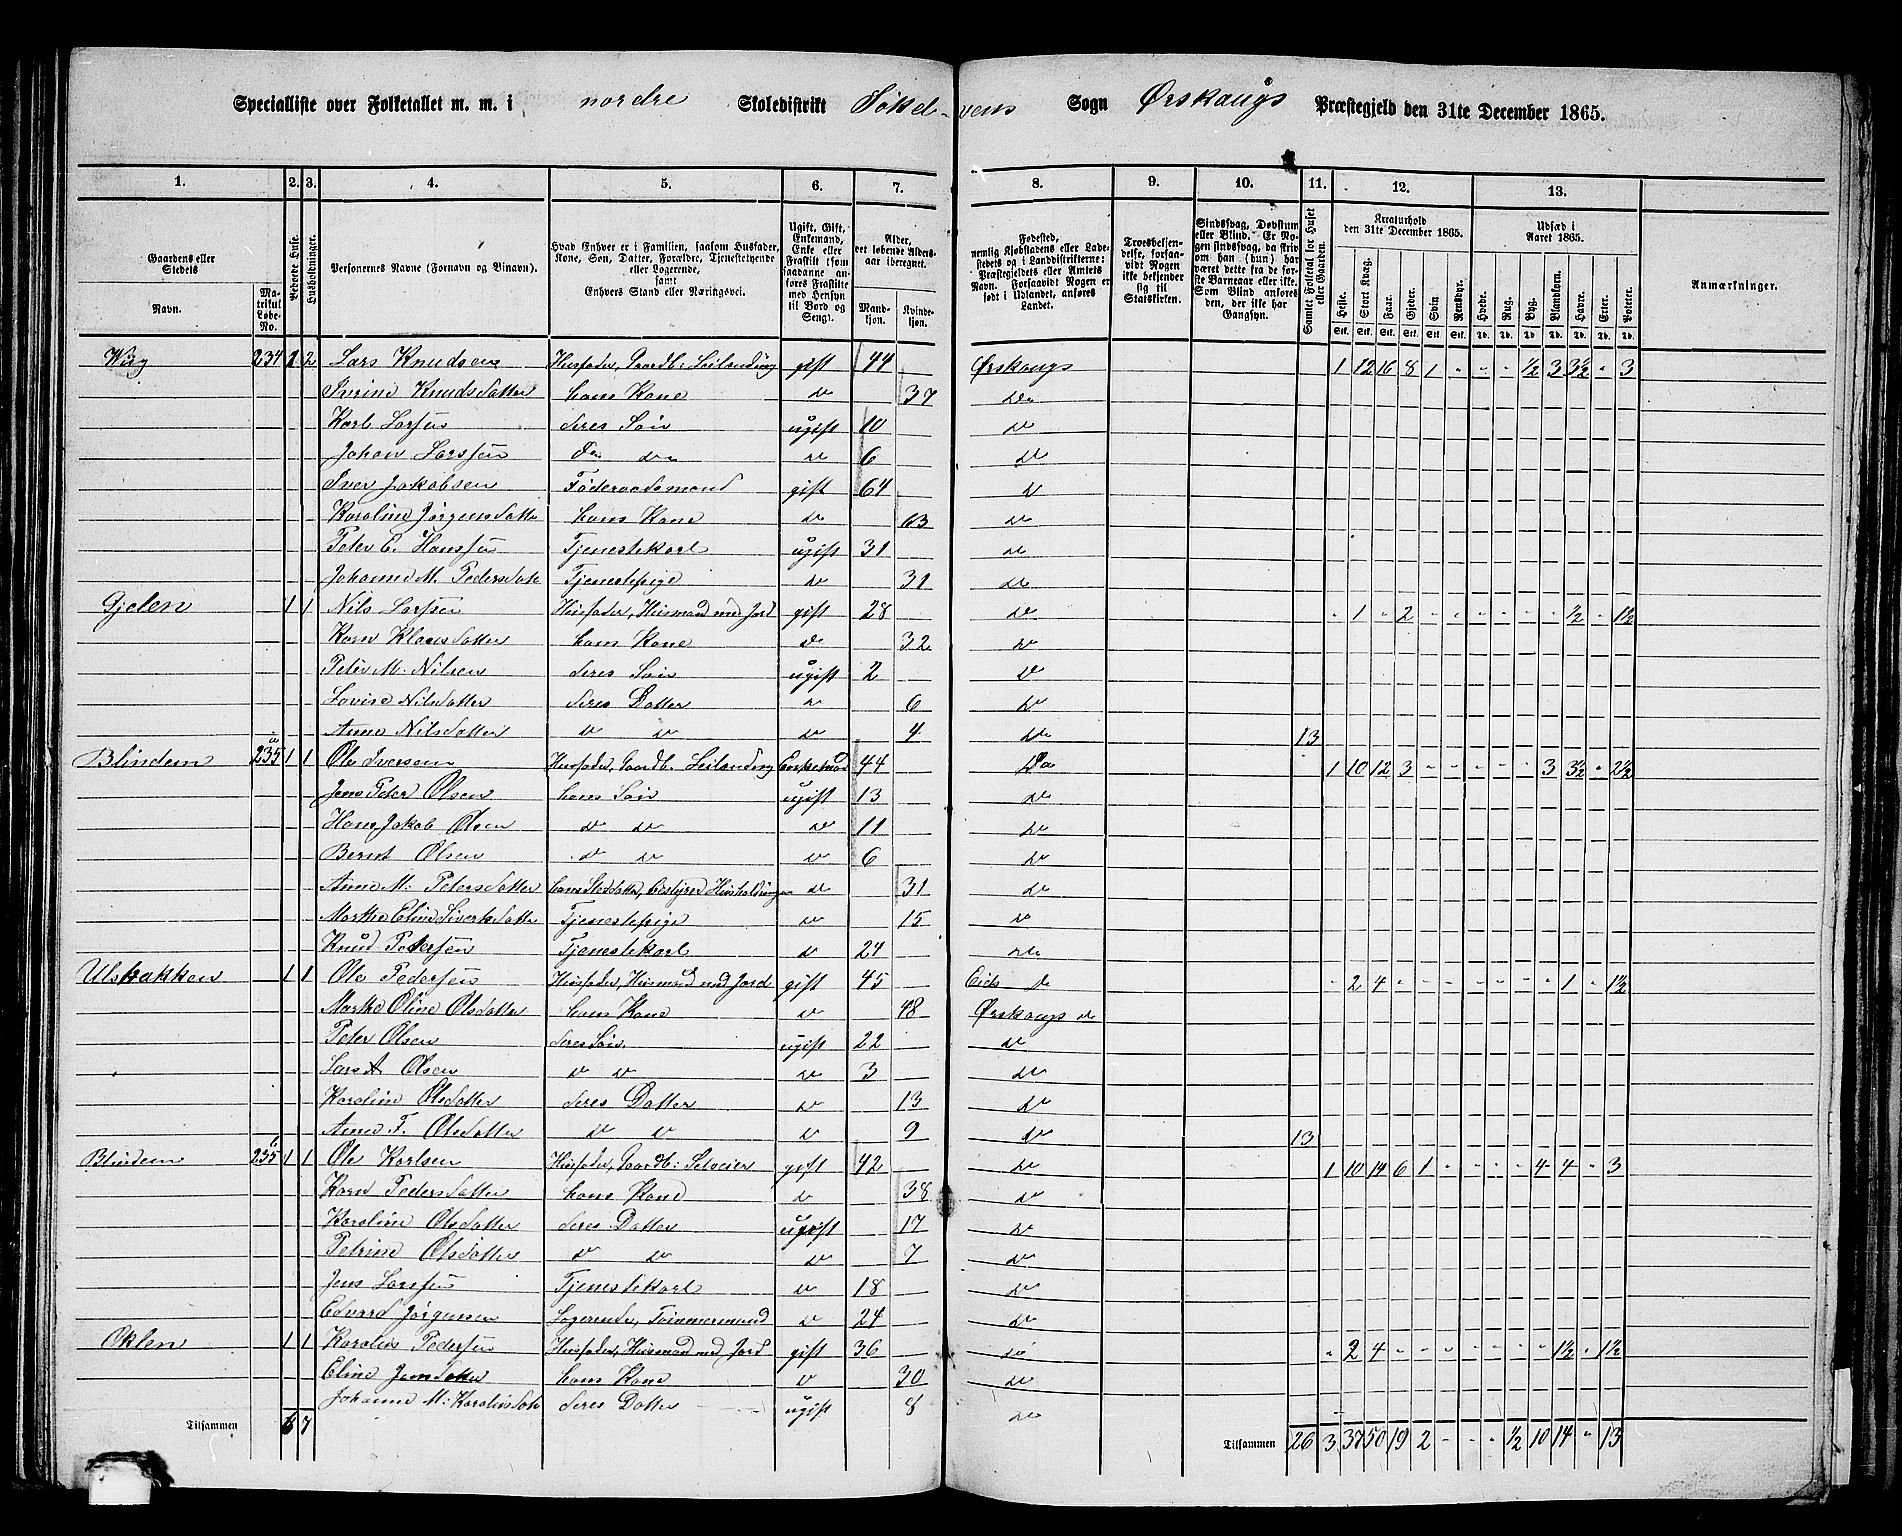 Specialliste over Folketallet m. m. i nordre Skoledistrikt Sognd Ørskougs Præstegjeld den 31te December 1865.
1. 2. 3. 4. 5. 6. 7. 8. 9. 10. 11. 12. 13.
Gaardens eller Stedets Navn. Matrikul Løbe-No. Beboede Huse. Husholdninger. Personernes Navne (Fornavn og Tilnavn). Hvad Enhver er i Familien, saasom Husfader, Kone, Søn, Datter, Forældre, Tjenestetyende eller Logerende, samt Enhvers Stand eller Næringsvei. Ugift, Gift, Enkemand, Enke eller Fraskilt (som saadanne anføres Fraskilte med Hensyn til Bord og Seng). Alder, det løbende Alders-aar iberegnet. Mandkjøn. Kvindekjøn. Fødested, nemlig Kjøbstadens eller Ladestedets og i Landdistrikterne: Præstegjeldets eller Amtets Navn. Forsaavidt Nogen er født i Udlandet, anføres Landet. Troesbekjendelse, forsaavidt Nogen ikke bekjender sig til Statskirken. Sindssvag, Døvstum eller Blind. Er Nogen sindssvag, da skriv om han (hun) har været dette fra de første Barneaar eller ikke. Som Blind anføres den, der ikke har Gangsyn. Samlet Folketal for Huset eller Gaarden. Kreaturhold den 31te December 1865. Udsæd i Aaret 1865. Anmærkninger.
Heste. Stort Kvæg. Faar. Gjeder. Svin. Rensdyr. Hvede. Rug. Byg. Blandkorn. Havre. Erter. Poteter.
234 1 2 Lars Knudsen Husfader, Gaardb: Leilending gift 44 Ørskougs 1 12 16 8 1 " " " ½ 3 3½ " 3
Iverine Knudsdatter hans Kone do 37 do
Karl Larsen deres Søn ugift 10 do
Johan Larsen do do do 6 do
Iver Jakobsen Føderaadsmand gift 64 do
Karoline Jørgensdatter hans Kone do 63 do
Peter E. Hansen Tjenestekarl ugift 31 do
Johanne M. Pedersdatter Tjenestepige do 31 do
Gjelen 1 1 Nils Larsen Husfader, Husmand med Jord gift 28 do " 1 " 2 " " " " " " ½ " 1½
Karn Klausdatter hans Kone do 32 do
Peter M. Nilsen deres Søn ugift 2 do
Lovise Nilsdatter deres Datter do 6 do
Anne Nilsdatter do do do 4 do 13
Blindem 235 a 1 1 Ole Iversen Husfader, Gaardb. Leilending Enkemand 44 Do 1 10 12 3 " " " " " 3 3½ " 2½
Jens Peter Olsen hans Søn ugift 13 do
Hans Jakob Olsen do do do 11 do
Bernt Olsen do do do 6 do
Anne M. Petersdatter hans Steddatter, bestyrer Husholdningen do 31 do
Marthe Eline Sivertsdatter Tjenestepige do 15 do
Knud Petersen Tjenestekarl do 24 do
Ulsbakken 1 1 Ole Pedersen Husfader, Husmand med Jord gift 45 Eids do " 2 4 " " " " " " " 1 " 1½
Marthe Oline Olsdatter hans Kone do 48 Ørskougs do
Peter Olsen deres Søn ugift 22 do
Lars A Olsen do do do 3 do
Karoline Olsdatter deres Datter do 13 do
Anne F. Olsdatter do do do 9 do 13
Blindem 235 b 1 1 Ole Karlsen Husfader, Gaardb: Selveier gift 42 do 1 10 14 6 1 " " " " 4 4 " 3
Karn Pedersdatter hans Kone do 38 do
Karoline Olsdatter deres Datter ugift 17 do
Petrine Olsdatter do do do 7 do
Jens Larsen Tjenestekarl do 18 do
Edvard Jørgensen Logerende, Tømmermand do 24 do
1 1 Karolus Pedersen Husfader, Husmand med Jord gift 36 do " 2 4 " " " " " " " 1½ " 1½
Eline Jensdatter hans Kone do 30 do
Johanne M. Karolusdatter deres Datter ugift 8 do
Tilsammen 6 7 Tilsammen 26 3 37 50 19 2 " " " ½ 10 14 " 13